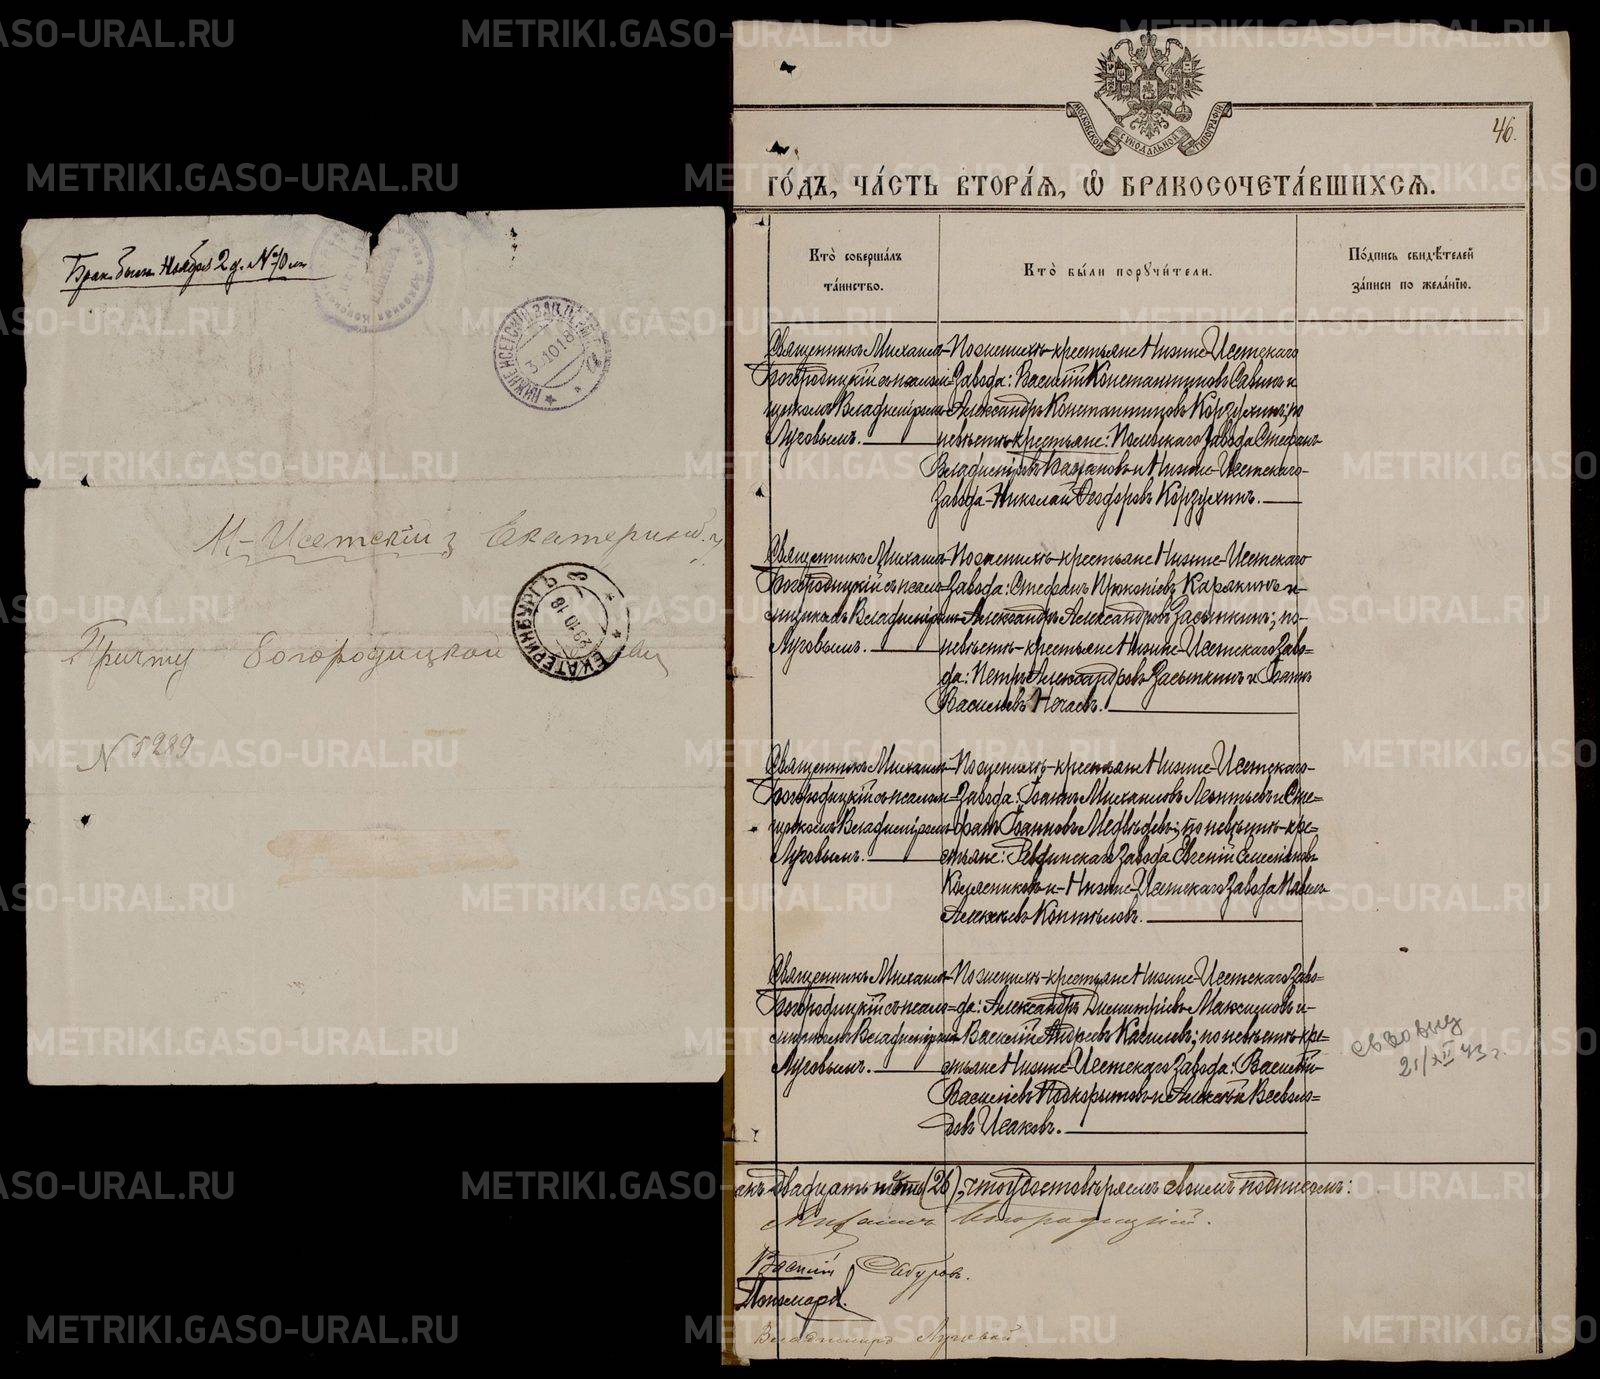 Брак. был. Ноября 2 д. №
НИЖНЕ ИСЕТСКІЙ ЗАВ.
3 10 18
Н-Исетскій з Екатеринб. у
ЕКАТЕРИНБУРГЪ
29 10 18
Причту Богородицкой
N 5289
МОСКОВСКОЙ СѴНОДАЛЬНОЙ ТИПОГРАФІИ
46.
ГО́ДЪ, ЧА́СТЬ ВТОРА́Я, Ѽ БРАКОСОЧЕТА́ВШИХСЯ.
Кто̀ соверша́лъ
та́инство.
Кто̀ бы́ли порꙋчи́тели.
По́дпись свидѣ́телей
за́писи по жела́нїю.
Священникъ Михаилъ
Богородицкій съ псалом-
щикомъ Владиміромъ
Луговымъ.
По женихѣ-крестьяне Нижне-Исетскаго
Завода: Василій Константиновъ Савинъ и
Александръ Константиновъ Корзухинъ; по
невѣстѣ-крестьяне: Полевскаго Завода Стефанъ
Владиміровъ Казаковъ и Нижне-Исетскаго
Завода-Николай Ѳеодоровъ Корзухинъ.
Священникъ Михаилъ
Богородицкій съ псалом-
щикомъ Владиміромъ
Луговымъ.
По женихѣ-крестьяне Нижне-Исетскаго
Завода: Стефанъ Прокопіевъ Карякинъ и
Александръ Александровъ Засыпкинъ; по
невѣстѣ-крестьяне Нижне-Исетскаго Заво-
да: Петръ Александровъ Засыпкинъ и Іоаннъ
Васильевъ Нечаевъ.
Священникъ Михаилъ
Богородицкій съ псалом-
щикомъ Владиміромъ
Луговымъ.
По женихѣ-крестьяне Нижне-Исетскаго
Завода: Іоаннъ Михаиловъ Леонтьевъ и Сте=
фанъ Іоанновъ Медвѣдевъ; по невѣстѣ-кре=
стьяне: Ревдинскаго Завода Евгеній Симеоновъ
и-Нижне-Исетскаго Завода Павелъ
Алексѣевъ Коптѣловъ.
Священникъ Михаилъ
Богородицкій съ псалом=
щикомъ Владиміромъ
Луговымъ.
По женихѣ-крестьяне Нижне-Исетскаго Заво=
да: Александръ Димитріевъ Максимовъ и-
Василій Андреевъ Кабиловъ; по невѣстѣ-кре=
стьяне Нижне-Исетскаго Завода: Василій
Васильевъ Подкорытовъ и Алексѣй Всеволо=
довъ Исаковъ.
21/XII 43 г.
акъ двадцать шесть (26), что удостовѣряемъ своимъ подписомъ:
Михаилъ Богородицкій.
Василій Сабуровъ.
Владиміръ Луговой
METRIKI.GASO-URAL.RU